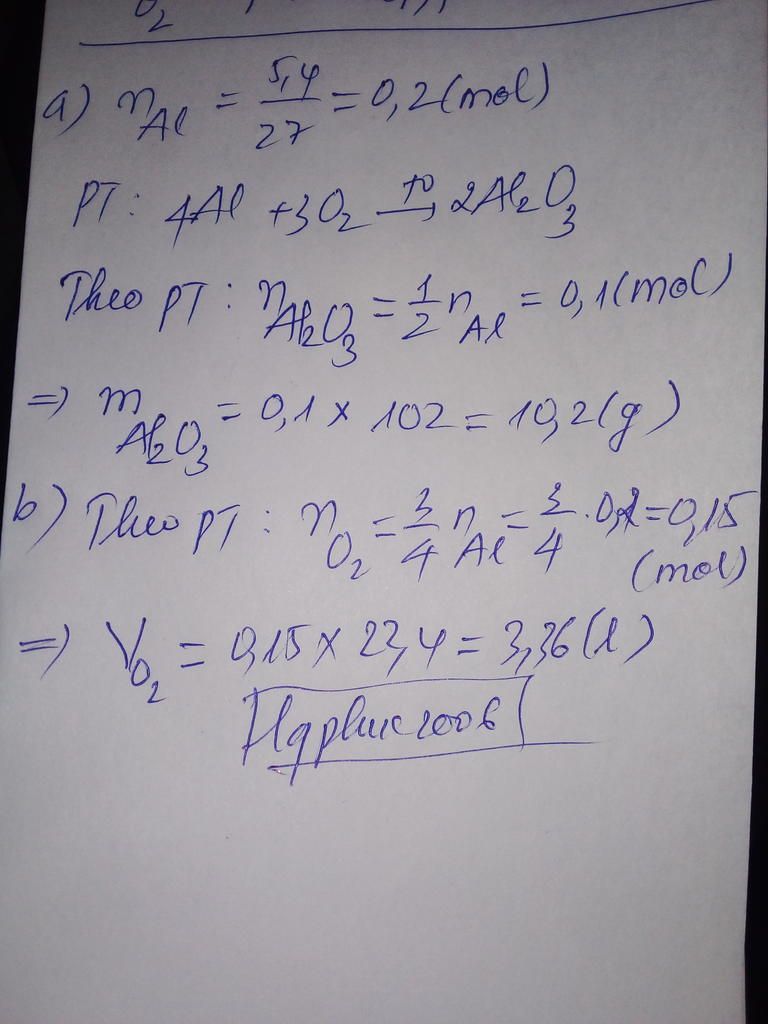 O₂
a) n_Al = 5,4/27 = 0,2 (mol)
PT: 4Al + 3O₂ →t° 2Al₂O₃
Theo PT: n_Al₂O₃ = 1/2 n_Al = 0,1 (mol)
=> m_Al₂O₃ = 0,1 × 102 = 10,2 (g)
b) Theo PT: n_O₂ = 3/4 n_Al = 3/4 . 0,2 = 0,15
(mol)
=> V_O₂ = 0,15 × 22,4 = 3,36 (l)